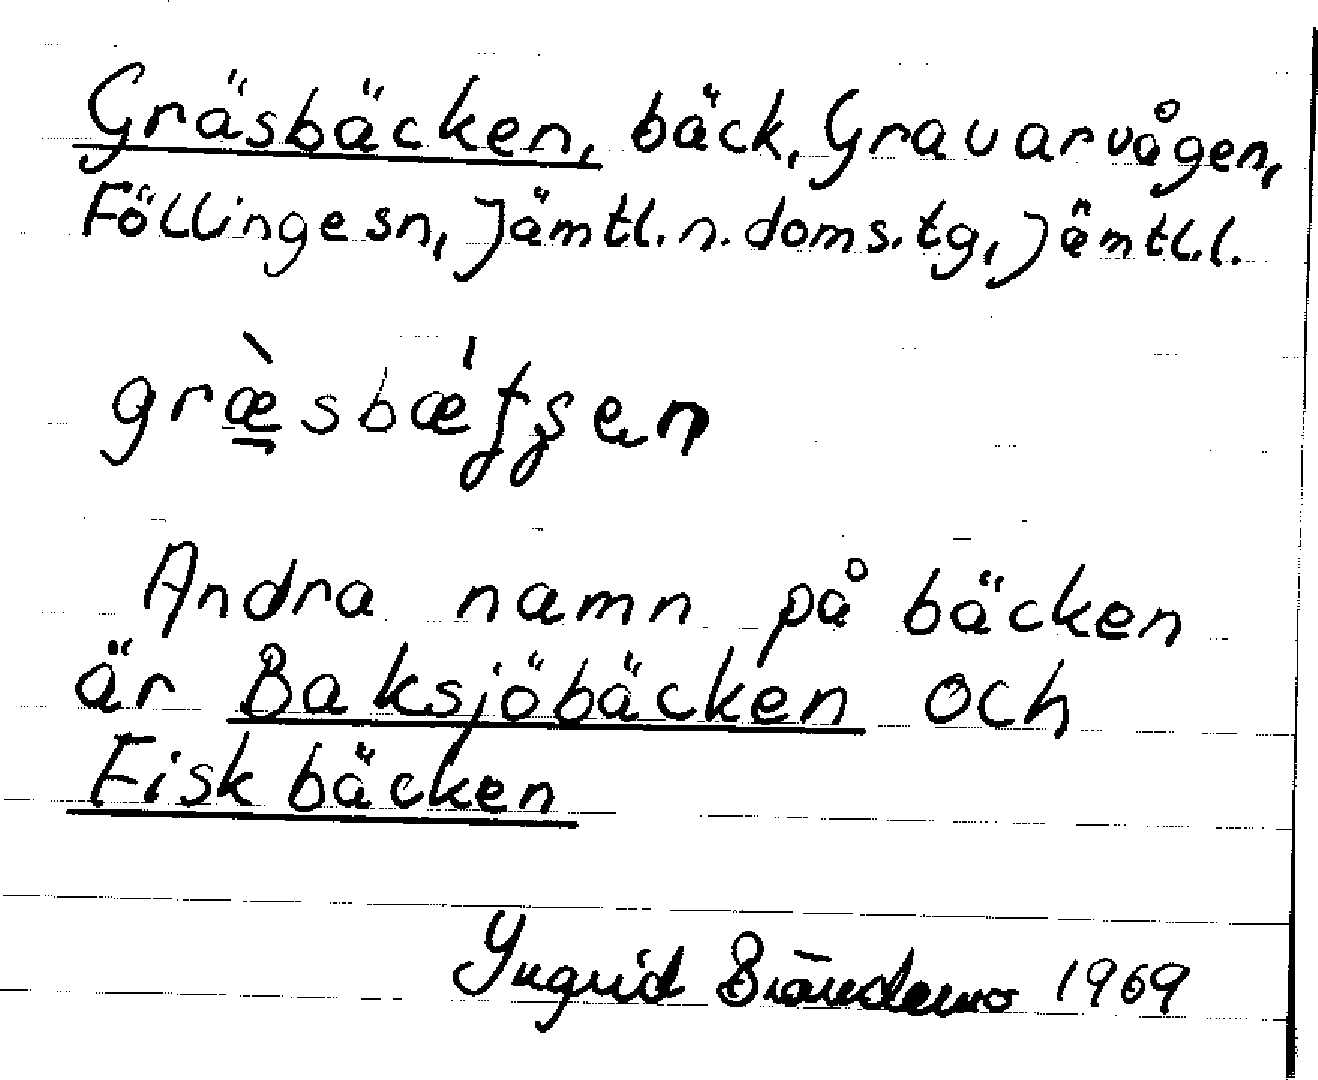 Gräsbäcken, bäck, Gravarvågen,
Föllinge sn, Jämtl. n. doms. tg, Jämtl. l.
Andra namn på bäcken
är Baksjöbäcken och
Fiskbäcken
Yngrid Brändemo 1969